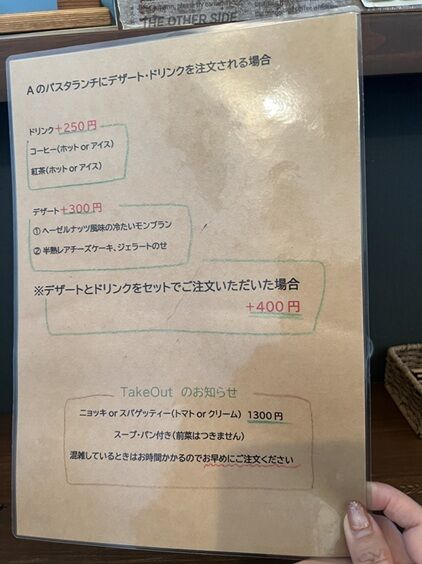 THE OTHER SIDE
Aのパスタランチにデザート・ドリンクを注文される場合
ドリンク+250円
コーヒー(ホット or アイス)
紅茶(ホット or アイス)
デザート+300円
① ヘーゼルナッツ風味の冷たいモンブラン
② 半熟レアチーズケーキ、ジェラートのせ
※デザートとドリンクをセットでご注文いただいた場合
+400円
TakeOut のお知らせ
ニョッキ or スパゲッティー(トマト or クリーム) 1300円
スープ・パン付き(前菜はつきません)
混雑しているときはお時間かかるのでお早めにご注文ください